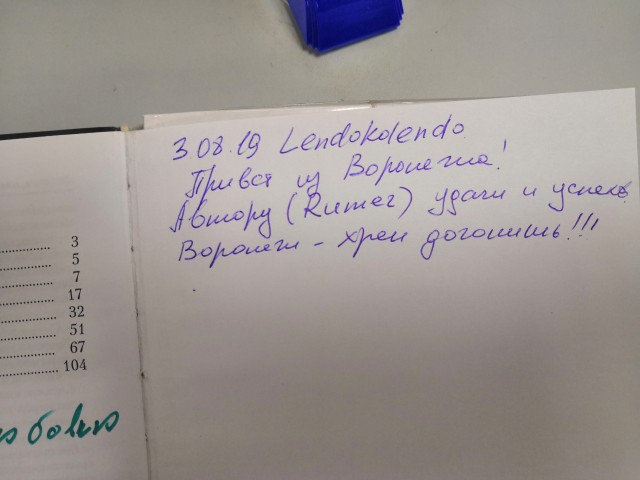 3.08.19 Lendokolendo
Привет из Воронежа!
Автору (Rumer) удачи и успехов
Воронеж - хрен догонишь!!!
3
5
7
17
32
51
67
104